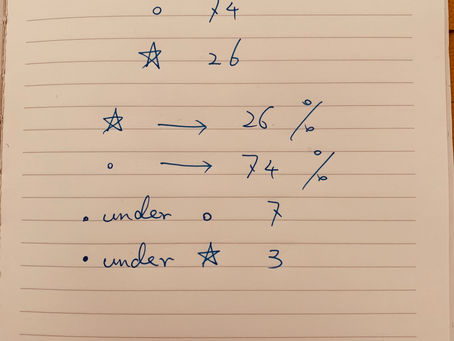 ○ 74
☆ 26
☆ → 26 %
○ → 74 %
• under ○ 7
• under ☆ 3